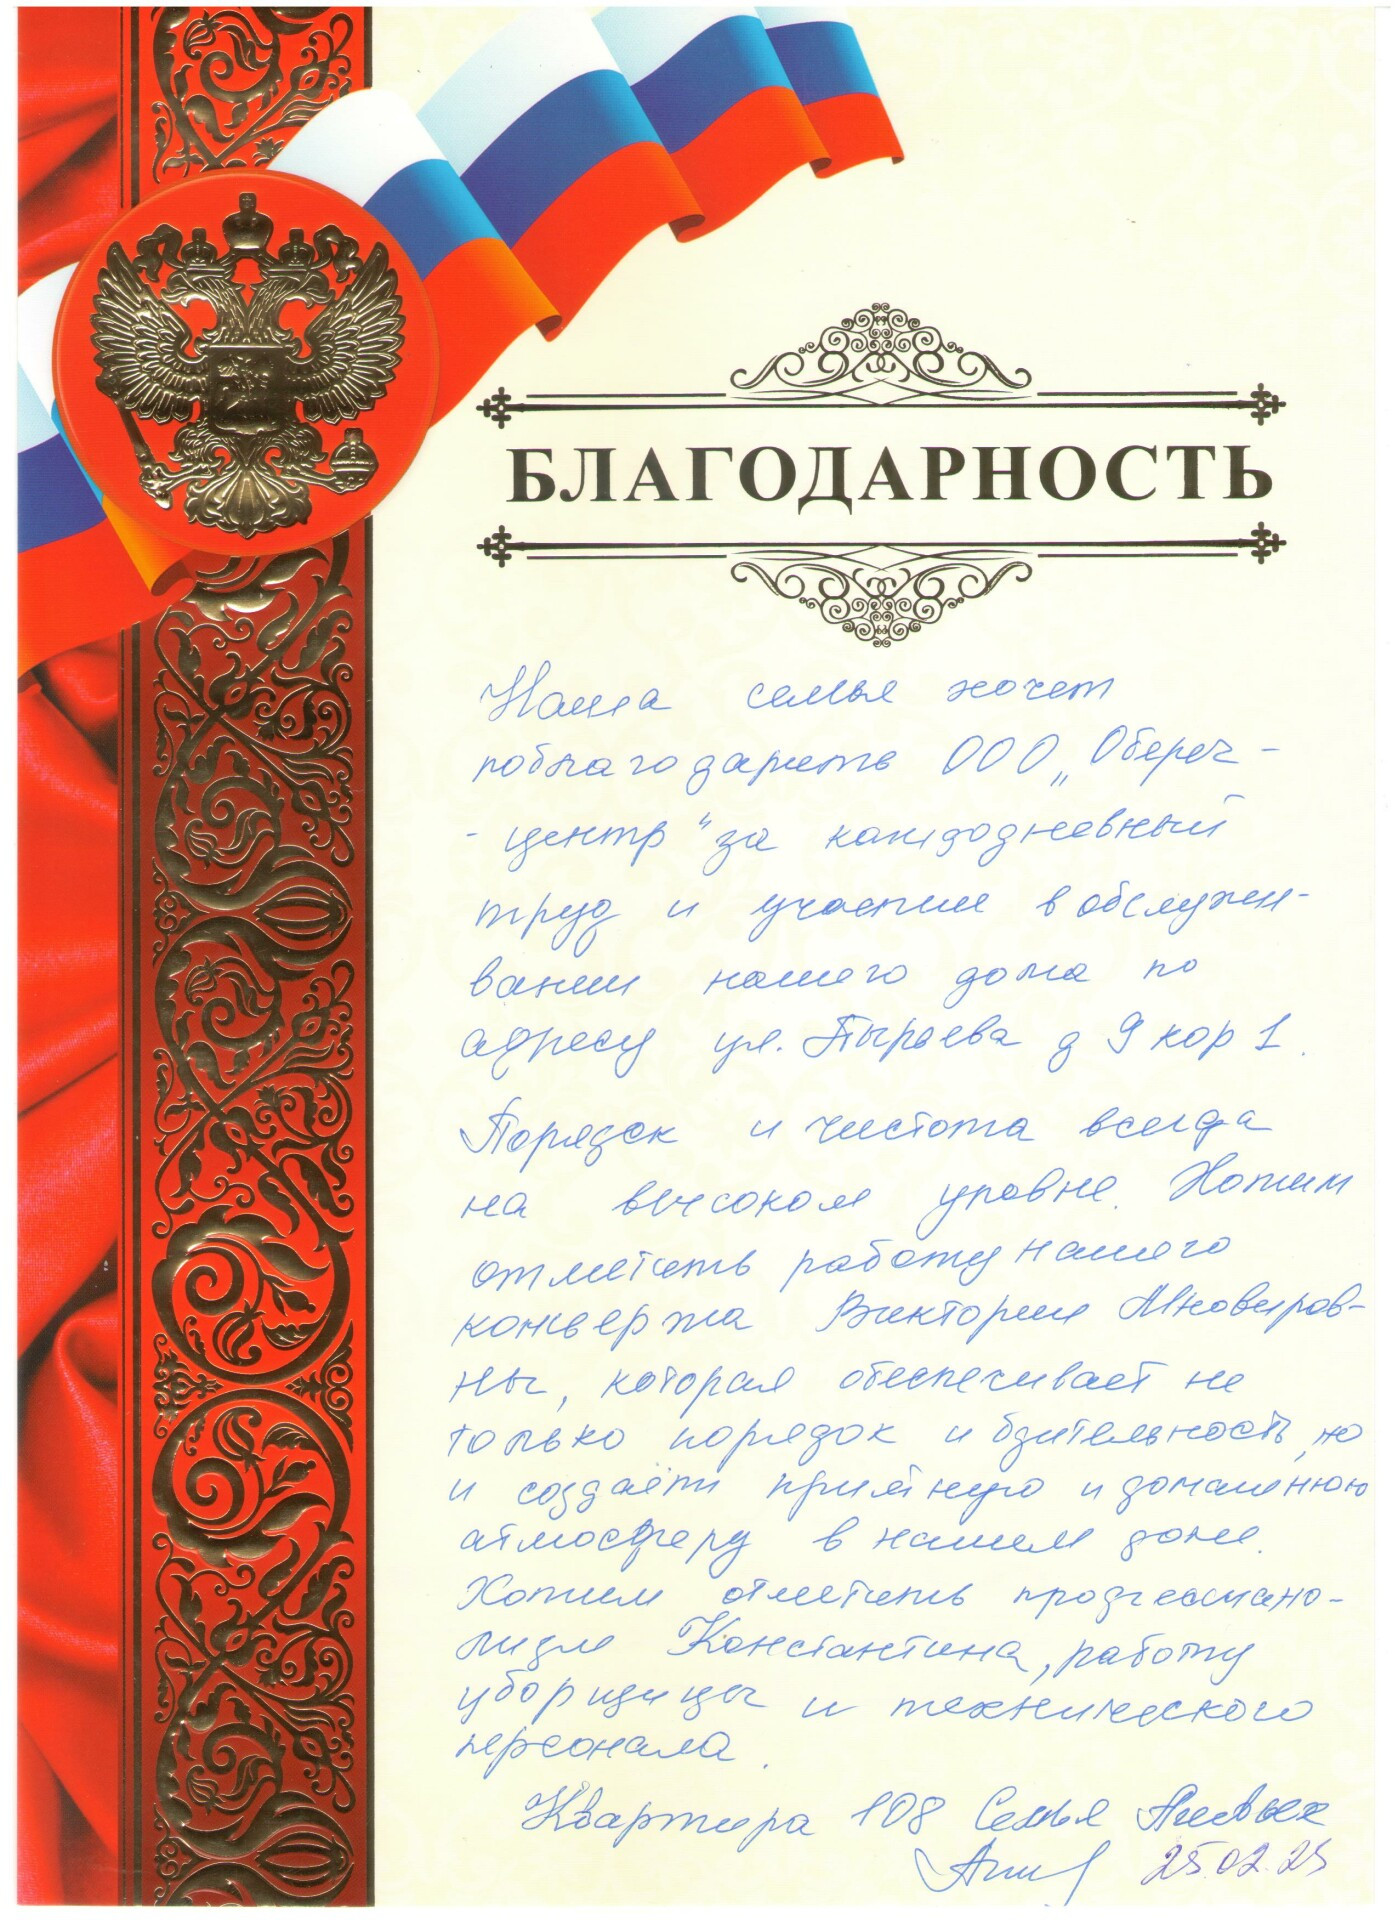 БЛАГОДАРНОСТЬ
Наша семья хочет
поблагодарить ООО „Обереч -
- центр" за каждодневный
труд и участие в обслужи-
вании нашего дома по
адресу ул. Пырьева д 9 кор 1.
Порядок и чистота всегда
на высоком уровне. Хотим
отметить работу нашего
консьержа Виктории
ны, которая обеспечивает не
только порядок и бдительность, но
и создаёт приятную и домашнюю
атмосферу в нашем доме.
Хотим отметить професиана-
лизм Константина, работу
уборщицы и технического
персонала.
Квартира 108 Семья
25.02.25